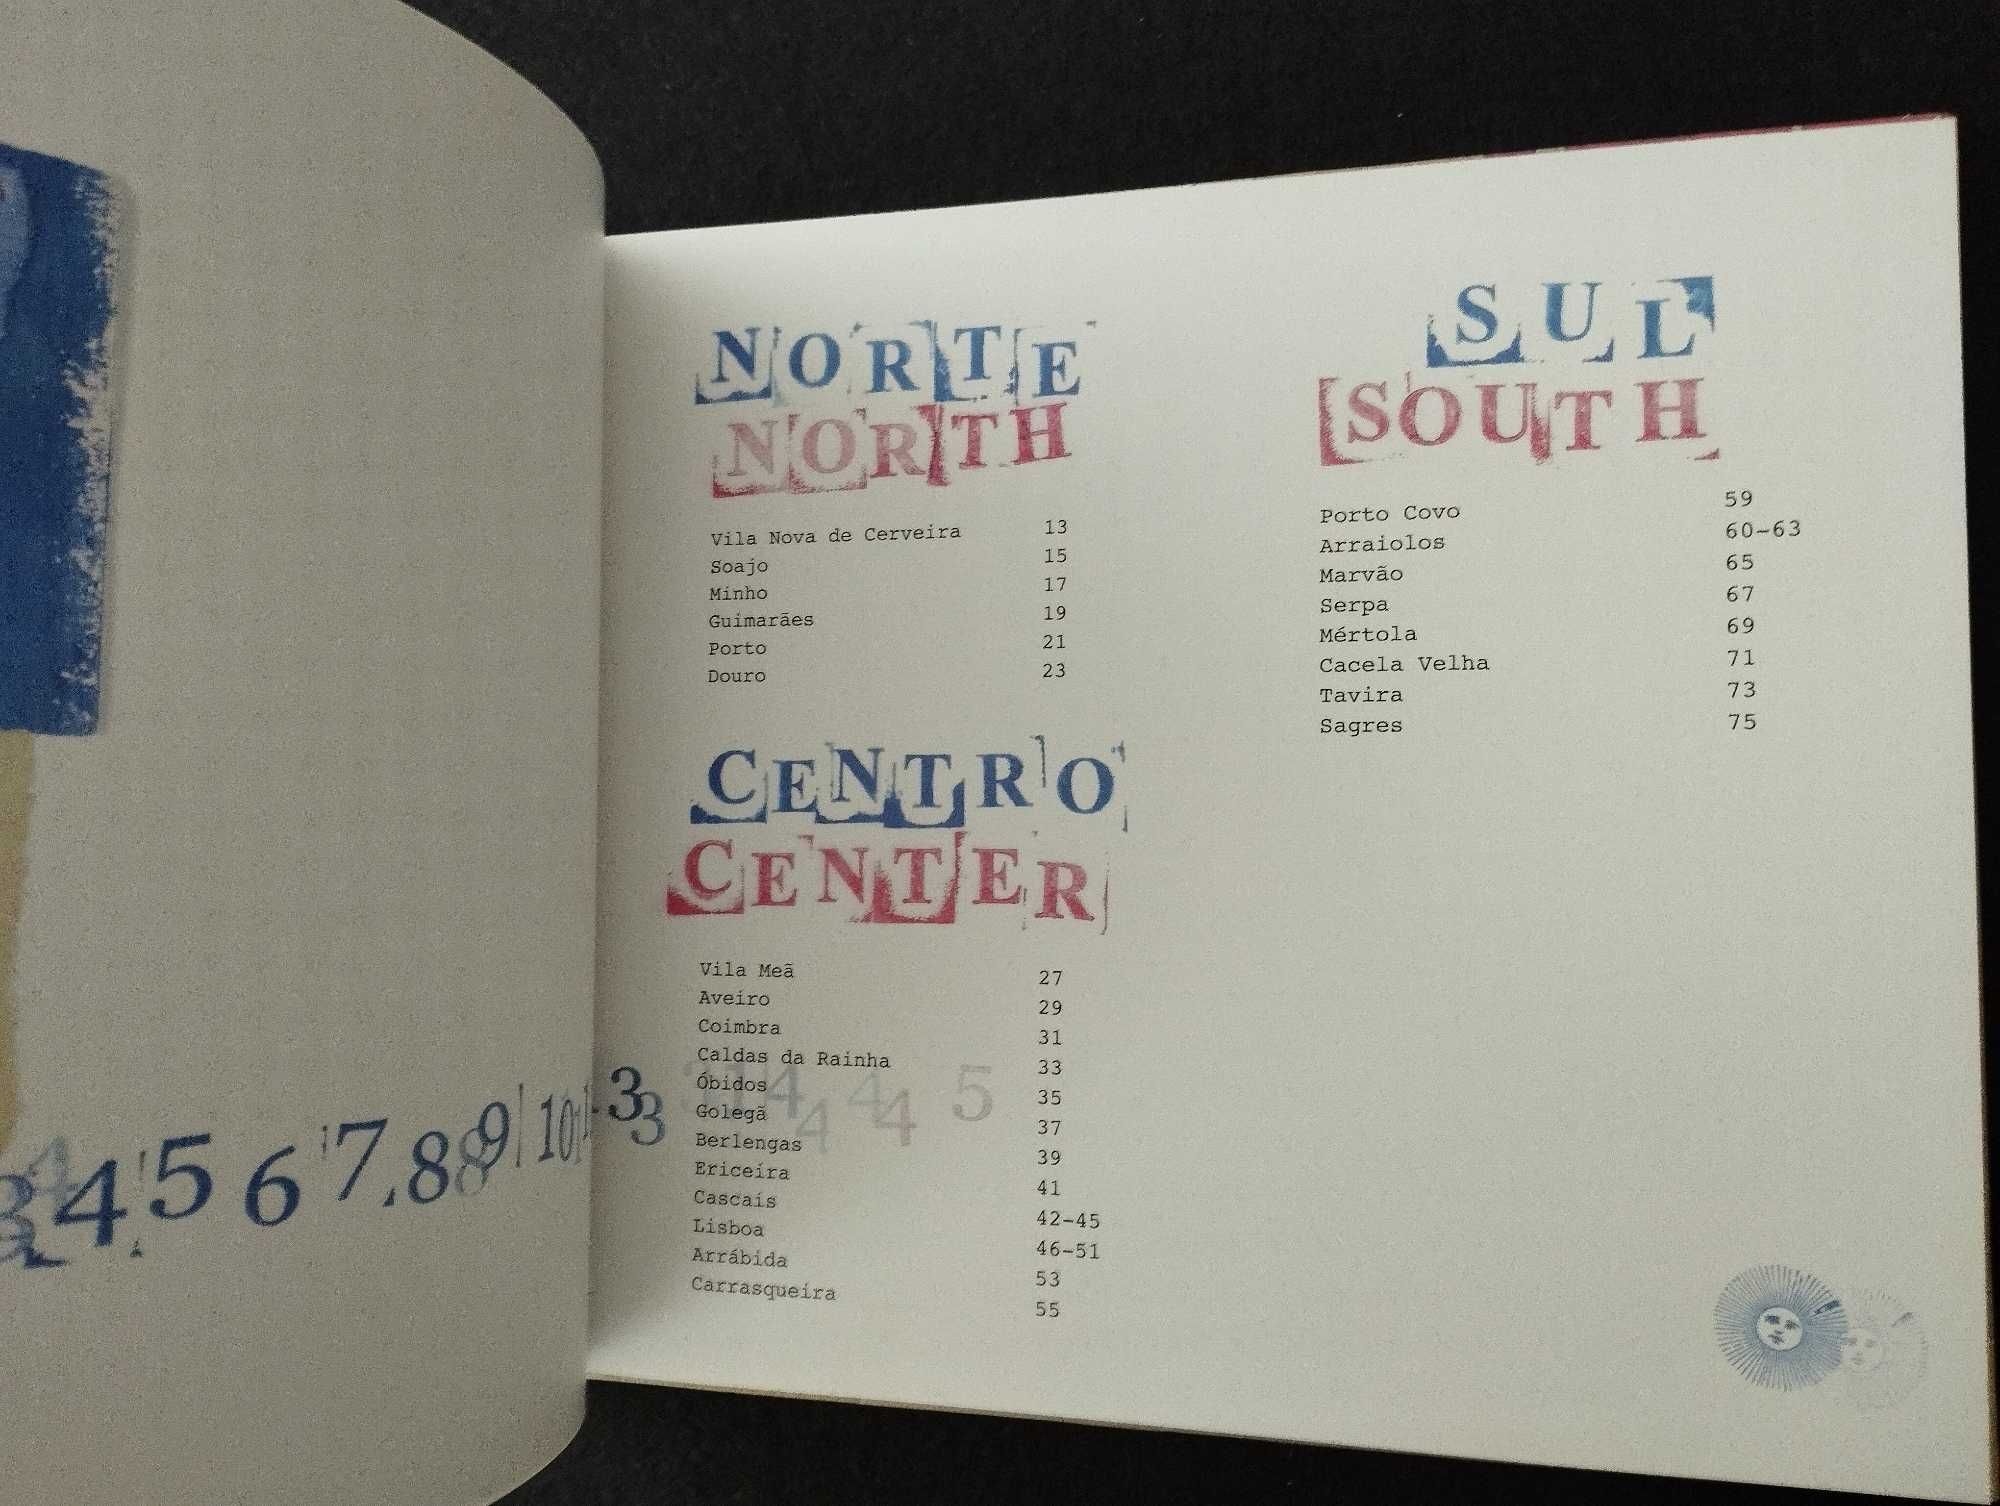 NORTE
NORTH
Vila Nova de Cerveira 13
Soajo 15
Minho 17
Guimarães 19
Porto 21
Douro 23
CENTRO
CENTER
Vila Meã 27
Aveiro 29
Coimbra 31
Caldas da Rainha 33
Óbidos 35
Golegã 37
Berlengas 39
Ericeira 41
Cascais 42-45
Lisboa 46-51
Arrábida 53
Carrasqueira 55
SUL
SOUTH
Porto Covo 59
Arraiolos 60-63
Marvão 65
Serpa 67
Mértola 69
Cacela Velha 71
Tavira 73
Sagres 75
3 4 4 5 6 7 8 8 9 10 3 3 4 4 4 4 5